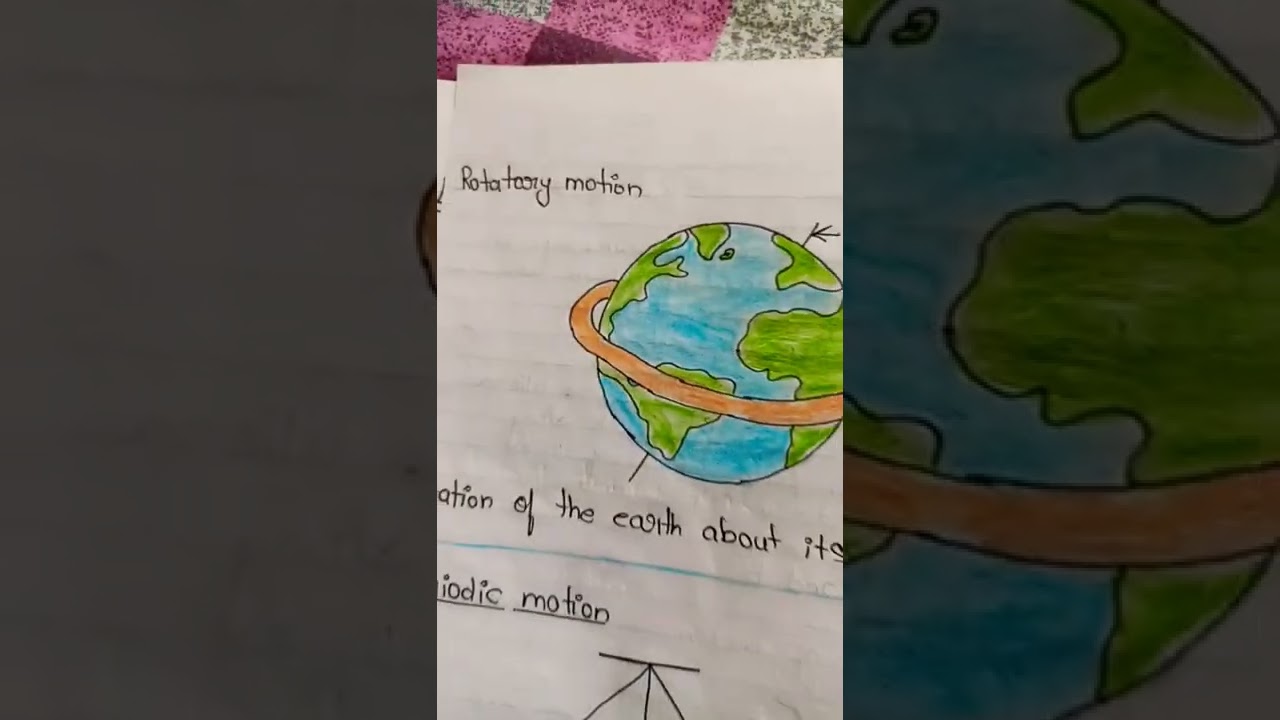 Rotatory motion
ation of the earth about its
iodic motion